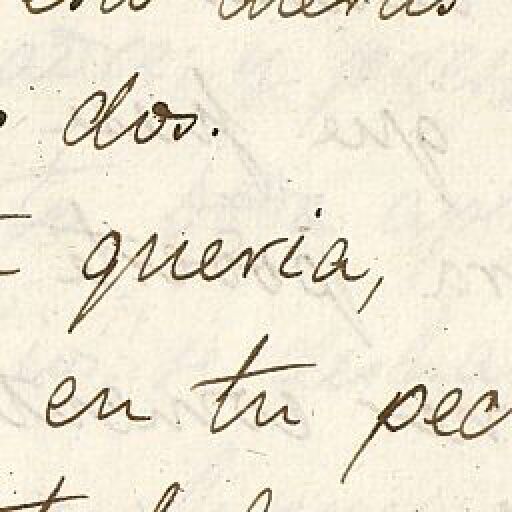 dos.
queria,
en tu pec